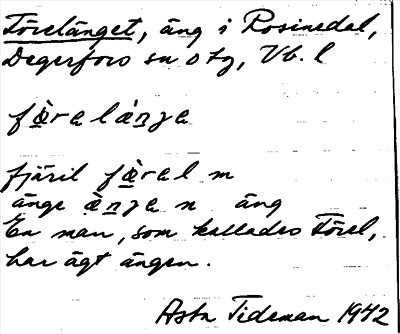 Förelänget, äng i Rosinedal,
Degerfors sn o tg, Vb. l
fjäril m
änge n äng
En man, som kallades Förel,
har ägt ängen.
Asta Tideman 1942